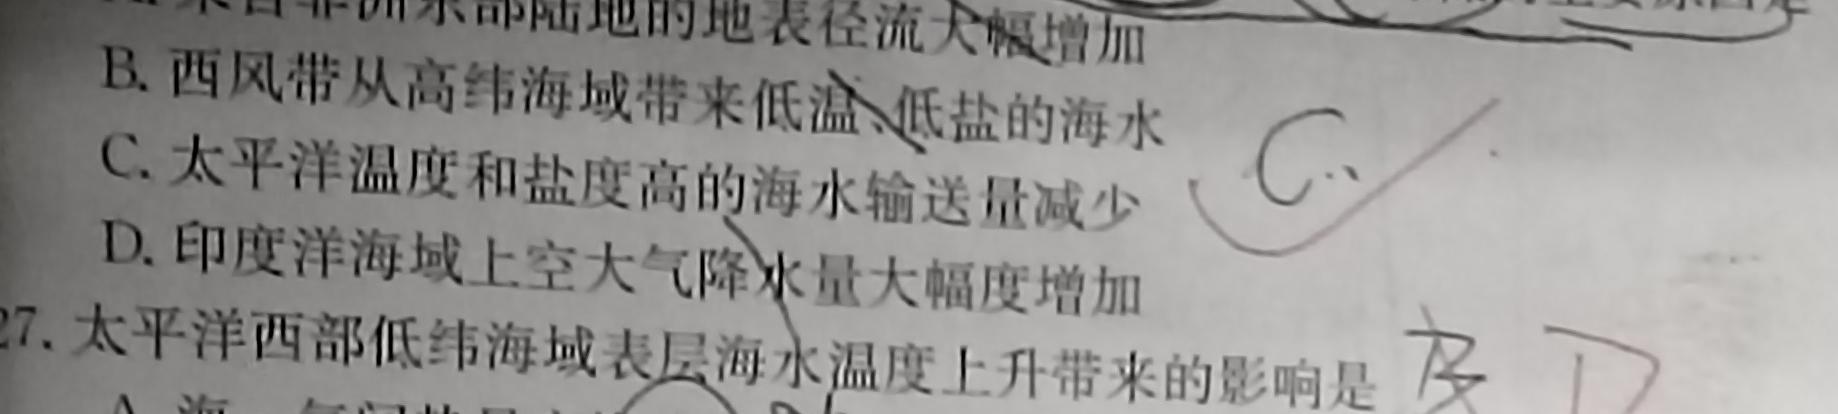 来自非洲东部陆地的地表径流大幅增加
B. 西风带从高纬海域带来低温、低盐的海水
C. 太平洋温度和盐度高的海水输送量减少
C
D. 印度洋海域上空大气降水量大幅度增加
27. 太平洋西部低纬海域表层海水温度上升带来的影响是
B D